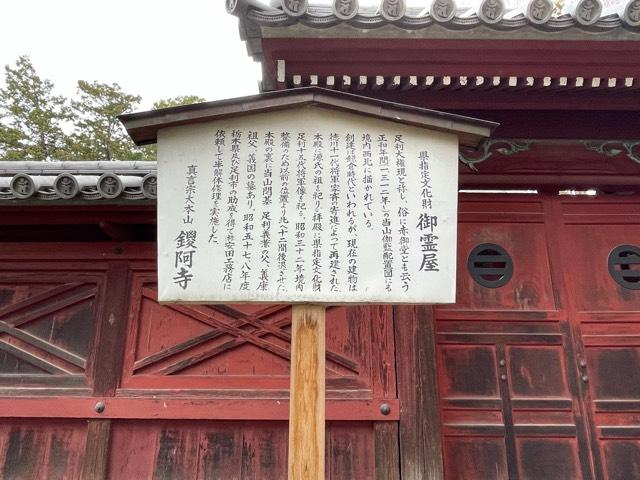 県指定文化財 御霊屋
足利大権現と称し、俗に赤御堂とも云う
正和年間(一三一二年~)の当山伽藍配置図にも
境内西北に描かれている。
創建は鎌倉時代といわれるが、現在の建物は
徳川十一代将軍家斉の寄進によって再建された
本殿に源氏の祖を祀り拝殿に県指定文化財
足利十五代将軍像を祀る。昭和三十二年境内
整備のため以前の位置より北へ十二間後退させ
本殿の裏に当山開基 足利義兼の父、義康
祖父、義国の墓あり、昭和五十七、八年度
栃木県及び足利市の助成を得て㈱安田工務店に
依頼して半解体修理を実施した。
真言宗大本山 鑁阿寺